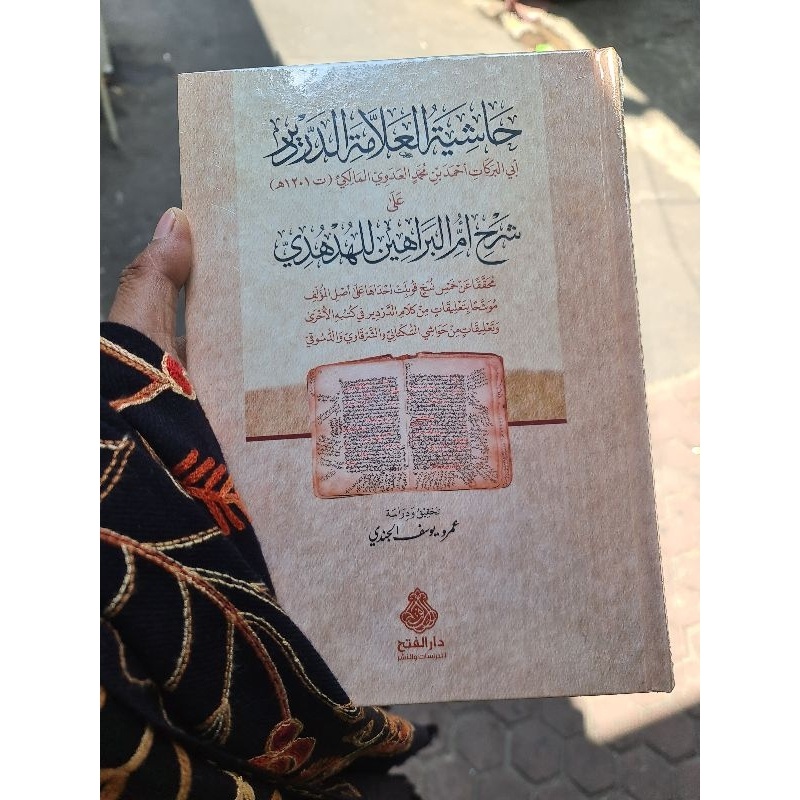 حَاشِيَةُ العَلَّامَةِ الدَّرْدِيرِ
أَبِي البَرَكَاتِ أَحْمَدَ بْنِ مُحَمَّدٍ العَدَوِيِّ المَالِكِيِّ (ت ١٢٠١هـ)
عَلَى
شَرْحِ أُمِّ البَرَاهِينِ لِلْهُدْهُدِيِّ
مُحَقَّقًا عَنْ خَمْسِ نُسَخٍ قُوبِلَتْ إِحْدَاهَا عَلَى أَصْلِ المُؤَلِّفِ
مُوَشَّحًا بِتَعْلِيقَاتٍ مِنْ كَلَامِ الدَّرْدِيرِ فِي كُتُبِهِ الأُخْرَى
وَتَعْلِيقَاتٍ مِنْ حَوَاشِي السُّكْتَانِيِّ وَالشَّرْقَاوِيِّ وَالدُّسُوقِيِّ
تحقيق ودراسة
عمرو يوسف الجندي
دار الفتح
للدراسات والنشر